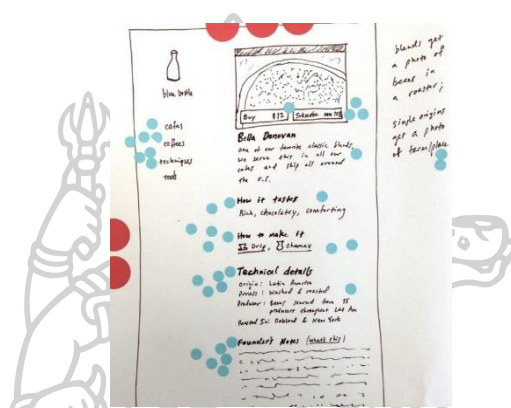 blue bottle
cafes
coffees
techniques
tools
Buy $12 Subscribe
Bella Donovan
one of our favorite classic blends,
we serve this in all our
cafes and ship all around
the U.S.
How it tastes
Rich, chocolatey, comforting
How to make it
Drip, Chemex
Technical details
Origin: Latin America
Process: Washed & roasted
Producer: Beans sourced from
producers throughout Lat Am
Roasted In: Oakland & New York
Founder's Notes (what's this)
blends get
a photo of
beans in
a roaster;
single origins
get a photo
of farm/place